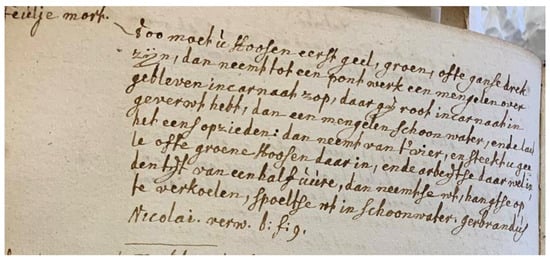 feulje mort.
Soo moet ù stoosen eerst geel, groen, ofte ganse drek
zijn, dan neemt tot een pont werk een mengelen over
gebleven incarnaat zop, daar gij root incarnaat in
geverwt hebt, dan een mengelen schoon water, ende laat
het eens opzieden: dan neemt van t'vier, en steekt u gee
le ofte groene stoosen daar in, ende arbeytse daar wel in
den tijt van een half ùùre, dan neemtse ùt, hangtse op
te verkoelen, spoeltse ut in schoon water. gerbrandus
Nicolai. verw. b. f. 9.